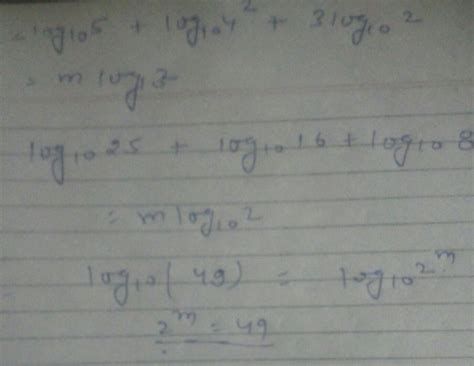 = log₁₀5 + log₁₀4² + 3log₁₀2
= m log₁3
log₁₀25 + log₁₀16 + log₁₀8
= m log₁₀2
log₁₀(49) = log₁₀2ᵐ
2ᵐ = 49